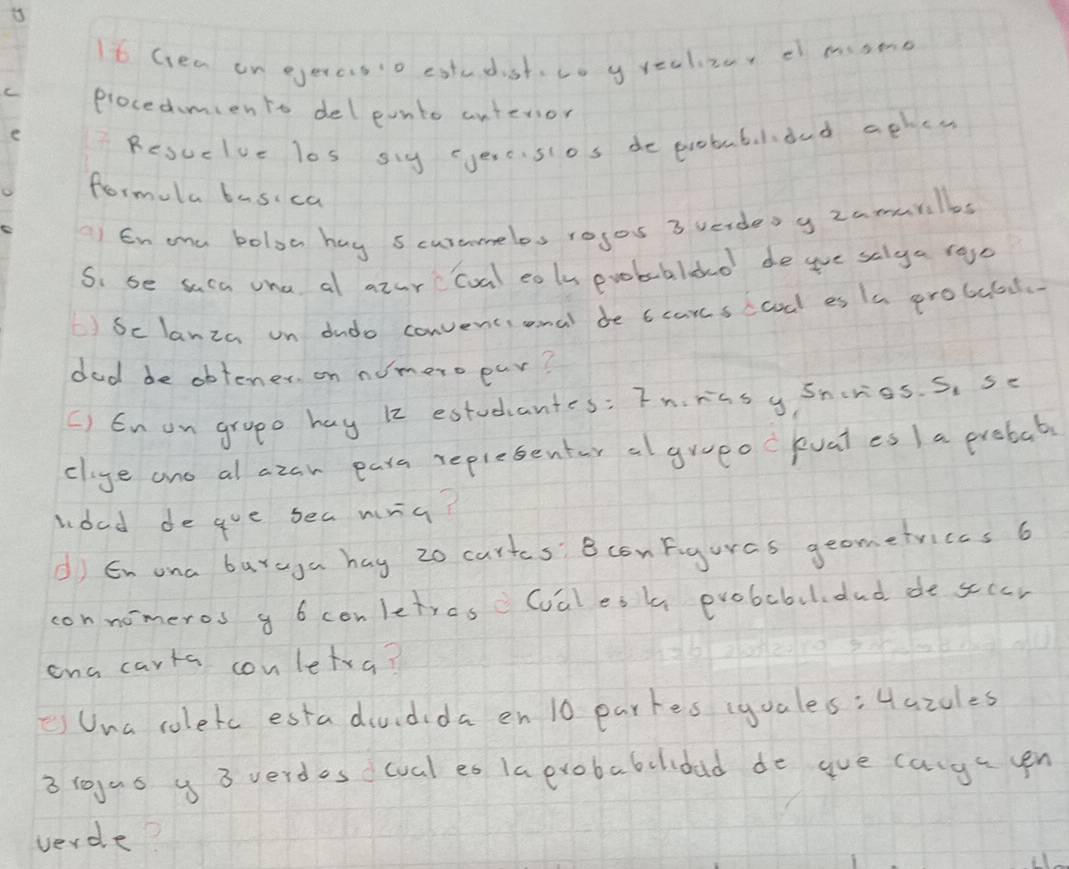 16 Crea un ejercisio estadistico y realizar el mismo
procedimiento del punto anterior
17 Resuelve los sig ejercisios de probabilidad aplica
formula basica
a) En una bolsa hay 5 caramelos rojos 3 verdes y 2 amarillos
Si se saca una al azar ¿Cual es la probabilidad de que salga rojo
b) Se lanza un dado convencional de 6 caras ¿cual es la probabili-
dad de obtener un número par?
c) En un grupo hay 12 estudiantes: 7 niñas y 5 niños. Si se
elige uno al azar para representar al grupo ¿Cual es la probabi
lidad de que sea niña?
d) En una baraja hay 20 cartas: 8 con figuras geometricas 6
con números y 6 con letras ¿Cuál es la probabilidad de sacar
una carta con letra?
e) Una ruleta esta dividida en 10 partes iguales: 4 azules
3 rojas y 3 verdes ¿cual es la probabilidad de que caiga en
verde?